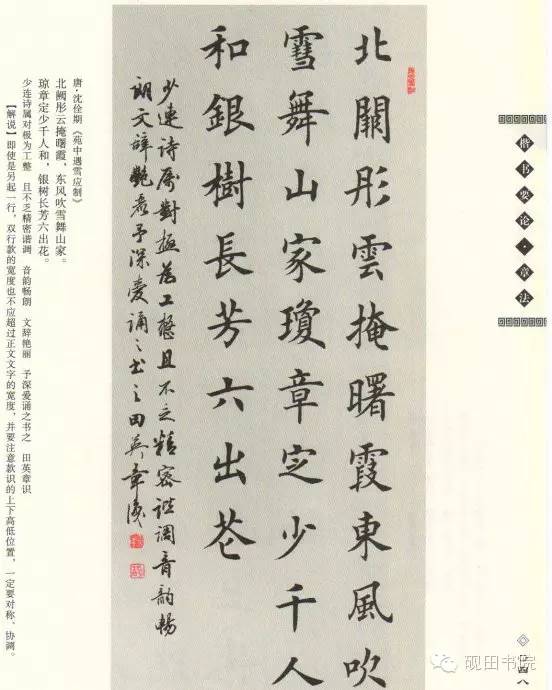 楷书要论·章法
〇四八
北闕彤雲掩曙霞東風吹
雪舞山家瓊章定少千人
和銀樹長芳六出花
少連诗屬對極為工整且不乏精密谐調音韵暢
朗文辞艷麗予深愛誦之书之田英章識
唐·沈佺期《苑中遇雪应制》
北阙彤云掩曙霞，东风吹雪舞山家。
琼章定少千人和，银树长芳六出花。
少连诗属对极为工整　且不乏精密谐调　音韵畅朗　文辞艳丽　予深爱诵之书之　田英章识
【解说】即使是另起一行，双行款的宽度也不应超过正文文字的宽度，并要注意款识的上下高低位置，一定要对称、协调。
砚田书院